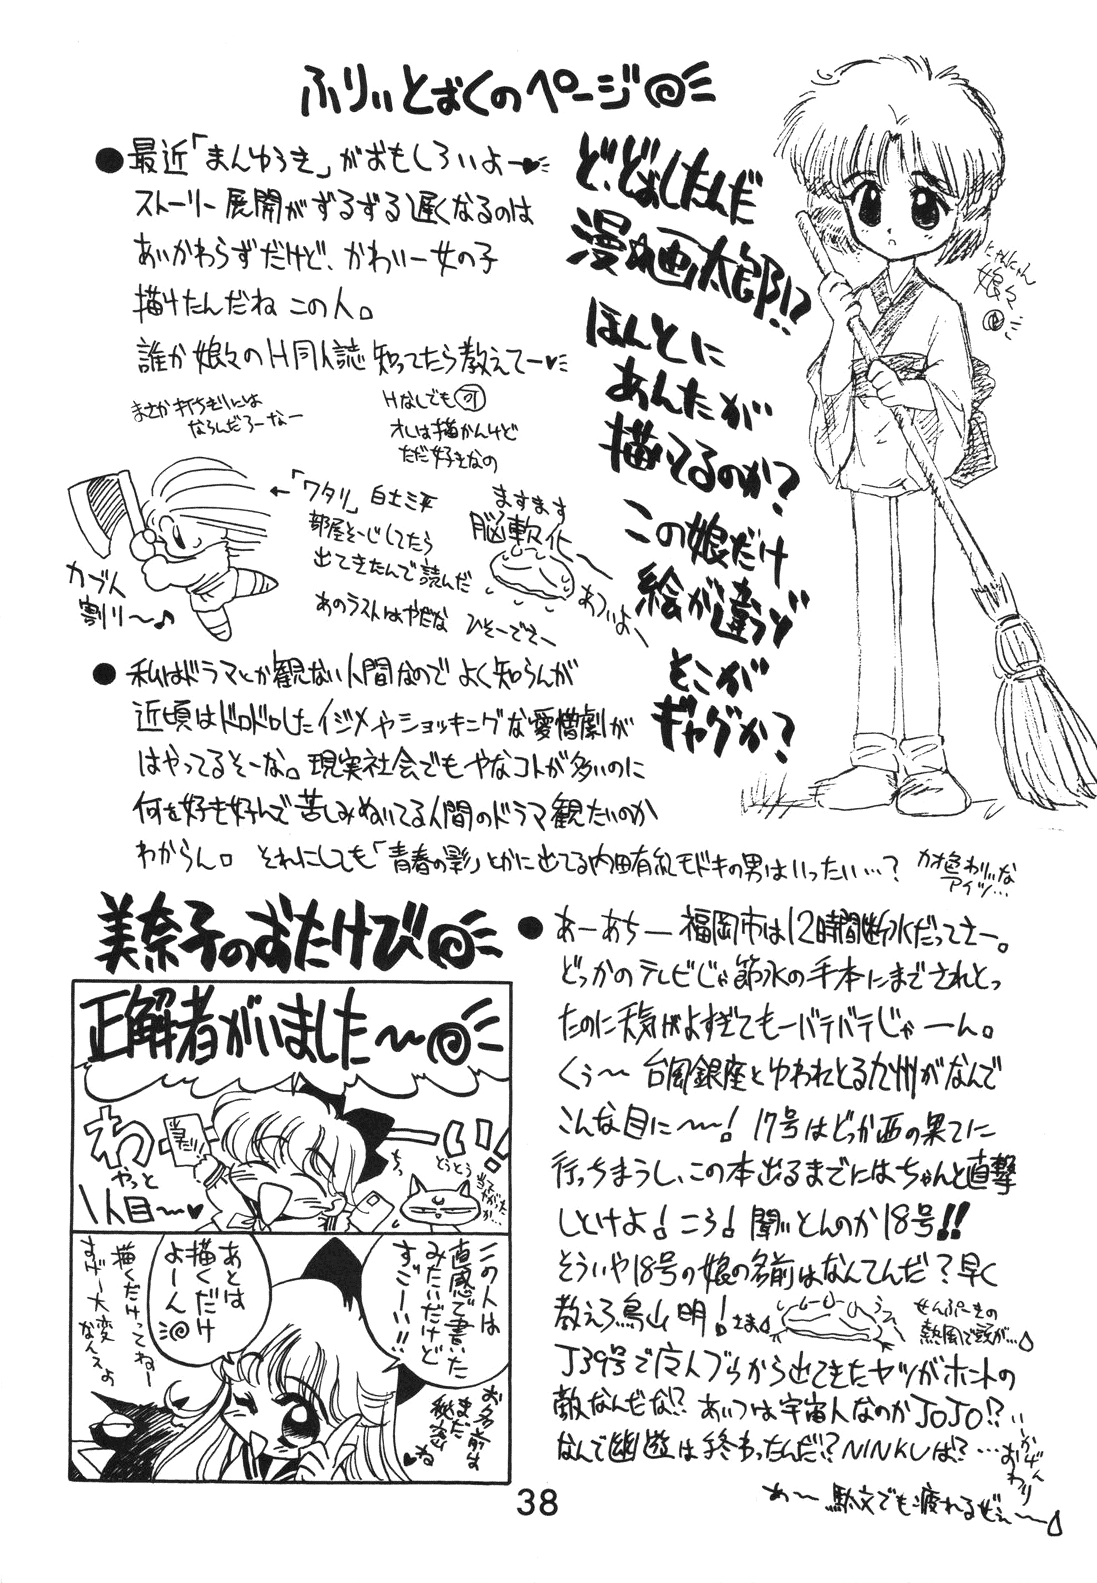 ふりぃとおくのページ
●最近「まんゆうき」がおもしろいよー♥
ストーリー展開がずるずる遅くなるのは
あいかわらずだけど、かわいー女の子
描けたんだね この人。
誰か娘々のH同人誌知ってたら教えてー♥
まさか打ちぎりには
ならんだろーなー
Hなしでも可
オレは描かんけど
ただ好きなの
ど、どおしたんだ
漫☆画太郎!?
ほんとに
あんたが
描いてるのか?
この娘だけ
絵が違うゾ
そこが
ギャグか?
にゃんにゃん
娘々
←「ワタリ」白土三平
部屋そーじしてたら
出てきたんで読んだ
あのラストはやだな ひそーでさー
カブト
割り〜♪
ますます
脳軟化ー
あついよー
●私はドラマとか観ない人間なのでよく知らんが
近頃はドロドロしたイジメやショッキングな愛憎劇が
はやってるそーな。現実社会でもやなコトが多いのに
何を好き好んで苦しみぬいてる人間のドラマ観たいのか
わからん。それにしても「青春の影」とかに出てる内田有紀モドキの男はいったい…?
カオ色わりいな
アイツ…
美奈子のおたけび
正解者がいました〜
わーーい!
当たり!
やっと
1人目〜♥
ちっ
とうとう
当てやがったか…
この人は
直感で書いた
みたいだけど
すごーい!!
お名前は
まだ
秘密
♥ね
あとは
描くだけ
よーん
描くだけってねー
すげー大変
なんスよ
●あーあちー 福岡市は12時間断水だってさー。
どっかのテレビじゃ節水の手本にまでされとっ
たのに天気がよすぎてもーバテバテじゃーん。
くぅ〜 台風銀座とゆわれとる九州がなんで
こんな目に〜〜! 17号はどっか西の果てに
行っちまうし、この本出るまでにはちゃんと直撃
しといけよ! ころ! 聞いとんのか18号!!
そういや18号の娘の名前はなんてんだ? 早く
教えろ鳥山明! さま
せんぷーきの
熱風で頭が…
J39号で庶人ブウから出てきたヤツがホントの
敵なんだな!? あいつは宇宙人なのかJOJO!?
なんで幽遊は終わったんだ!? NINKUは? …
おわり
あー駄文でも疲れるぜぇー〜
38